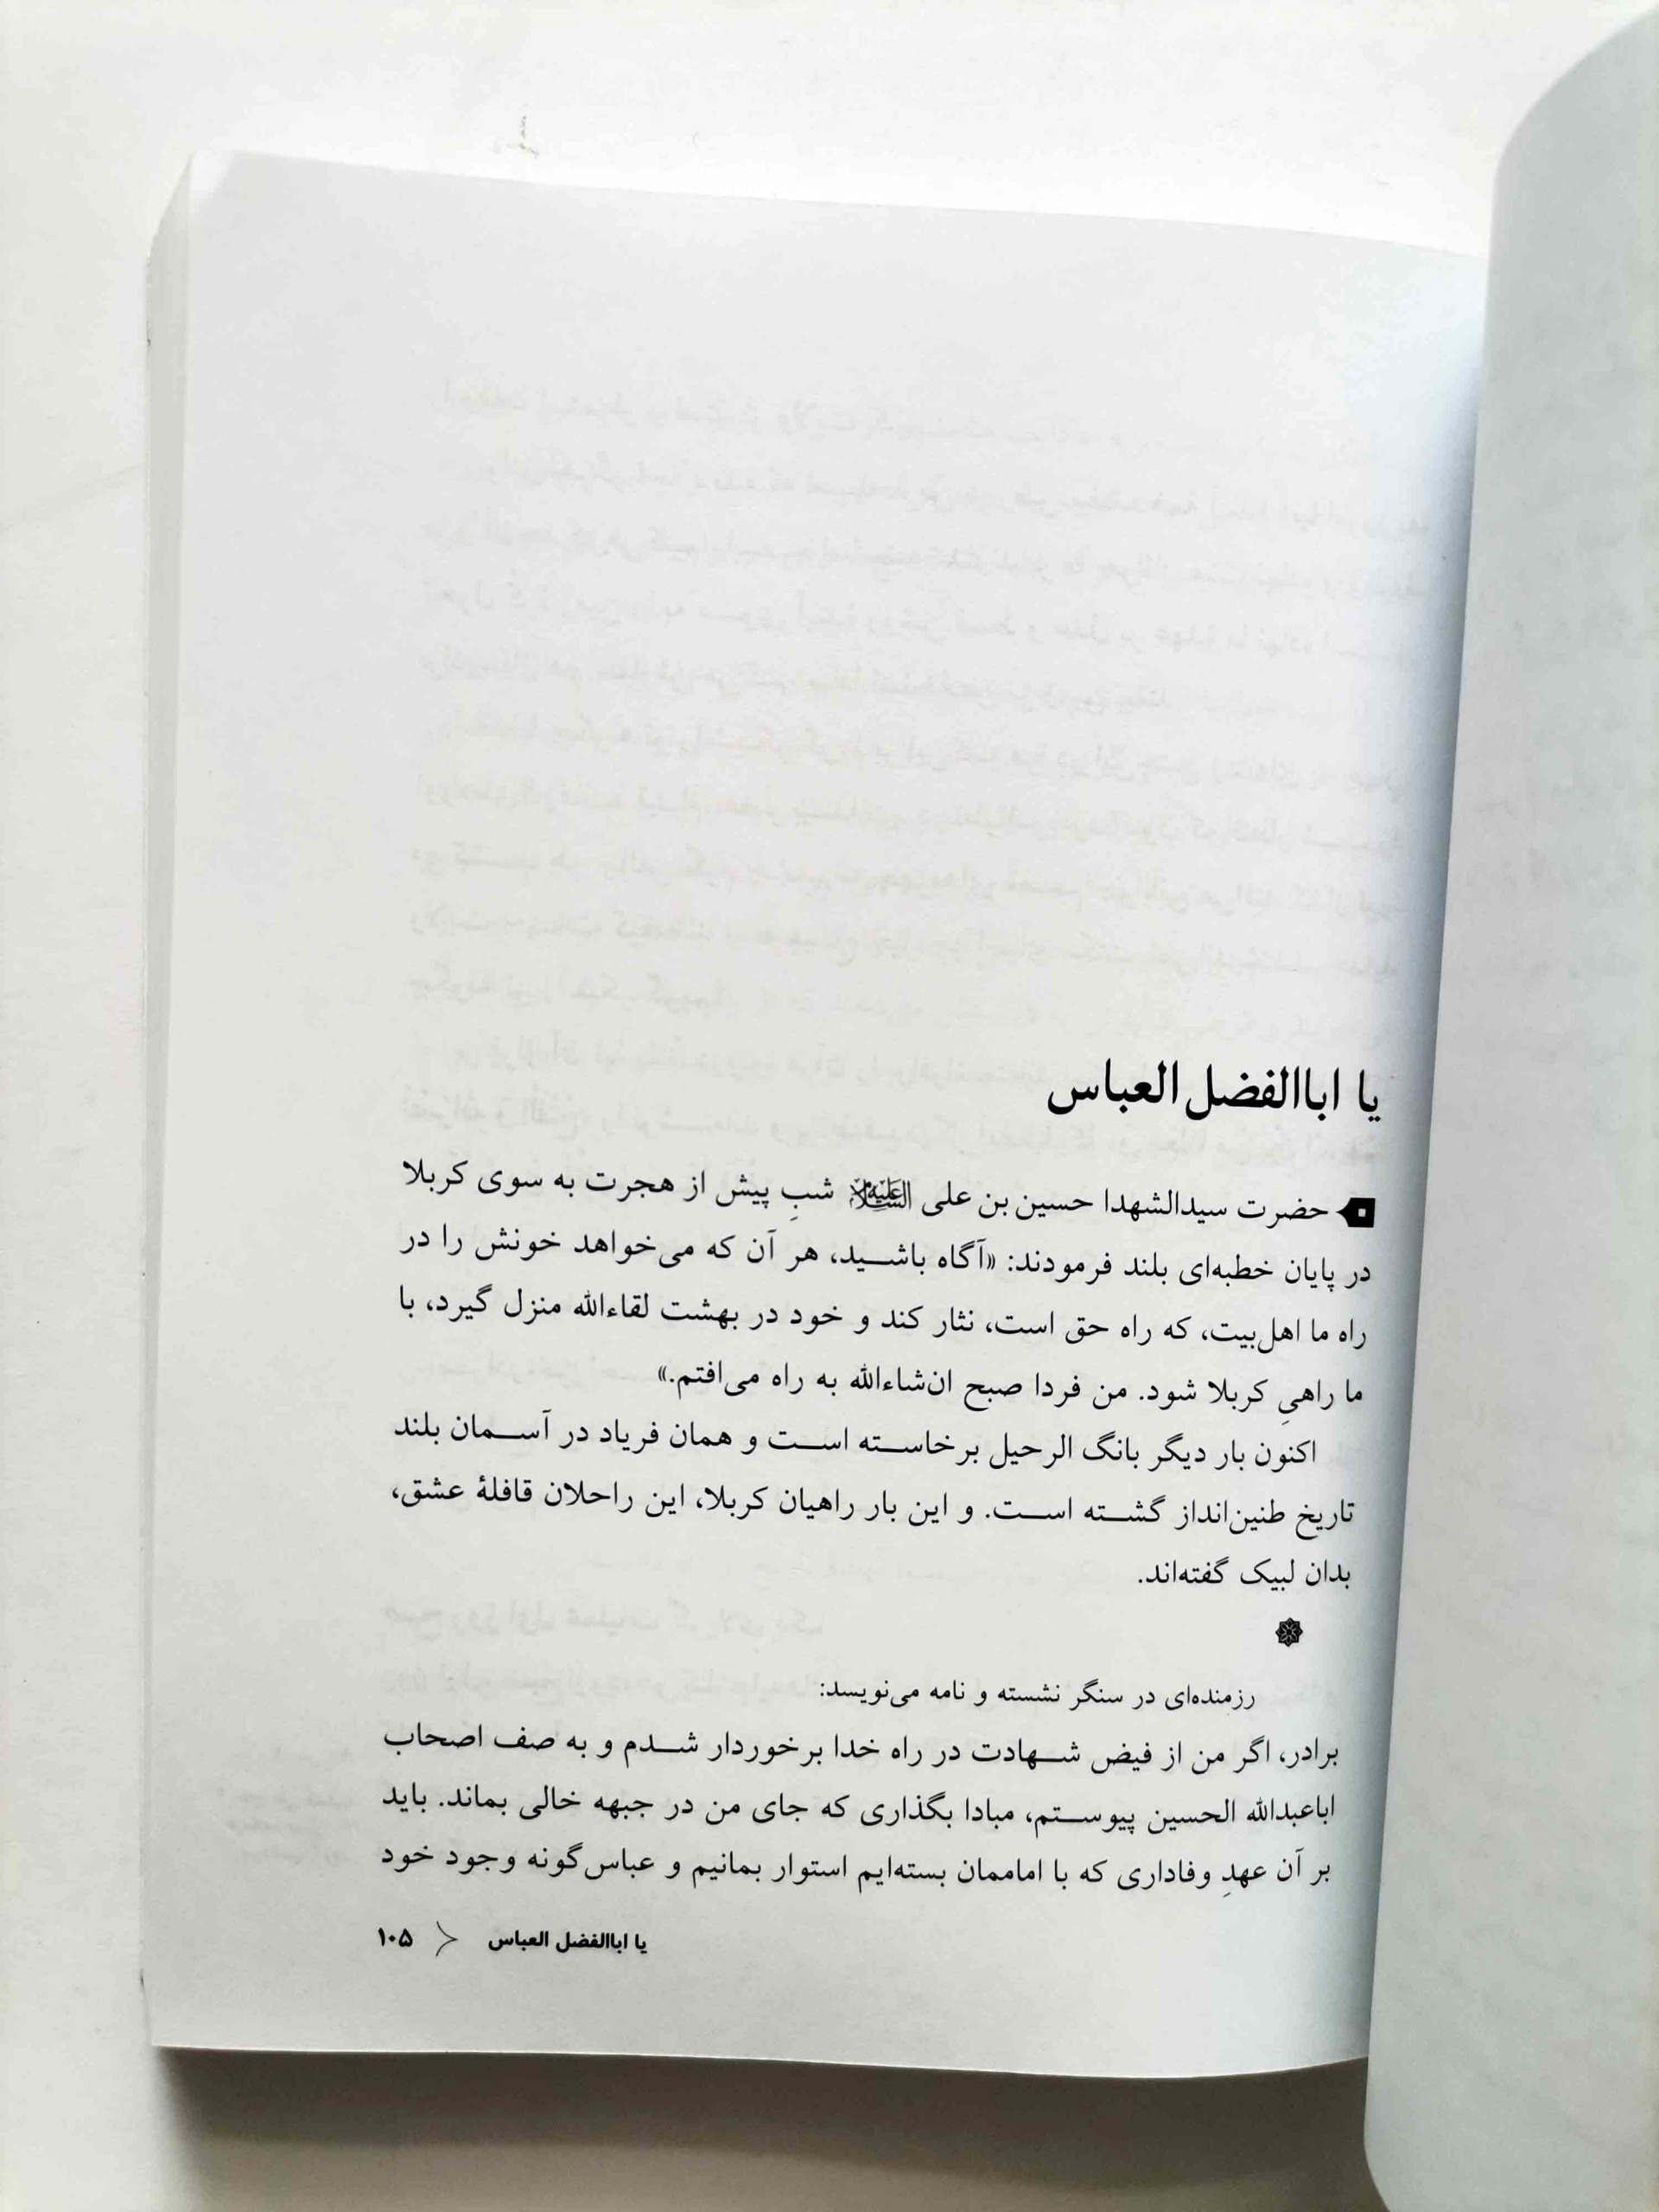 یا اباالفضل العباس
حضرت سیدالشهدا حسین بن علی علیه‌السلام شبِ پیش از هجرت به سوی کربلا
در پایان خطبه‌ای بلند فرمودند: «آگاه باشید، هر آن که می‌خواهد خونش را در
راه ما اهل‌بیت، که راه حق است، نثار کند و خود در بهشت لقاءالله منزل گیرد، با
ما راهیِ کربلا شود. من فردا صبح ان‌شاءالله به راه می‌افتم.»
اکنون بار دیگر بانگ الرحیل برخاسته است و همان فریاد در آسمان بلند
تاریخ طنین‌انداز گشته است. و این بار راهیان کربلا، این راحلان قافلهٔ عشق،
بدان لبیک گفته‌اند.
رزمنده‌ای در سنگر نشسته و نامه می‌نویسد:
برادر، اگر من از فیض شهادت در راه خدا برخوردار شدم و به صف اصحاب
اباعبدالله الحسین پیوستم، مبادا بگذاری که جای من در جبهه خالی بماند. باید
بر آن عهدِ وفاداری که با اماممان بسته‌ایم استوار بمانیم و عباس‌گونه وجود خود
یا اباالفضل العباس > ۱۰۵